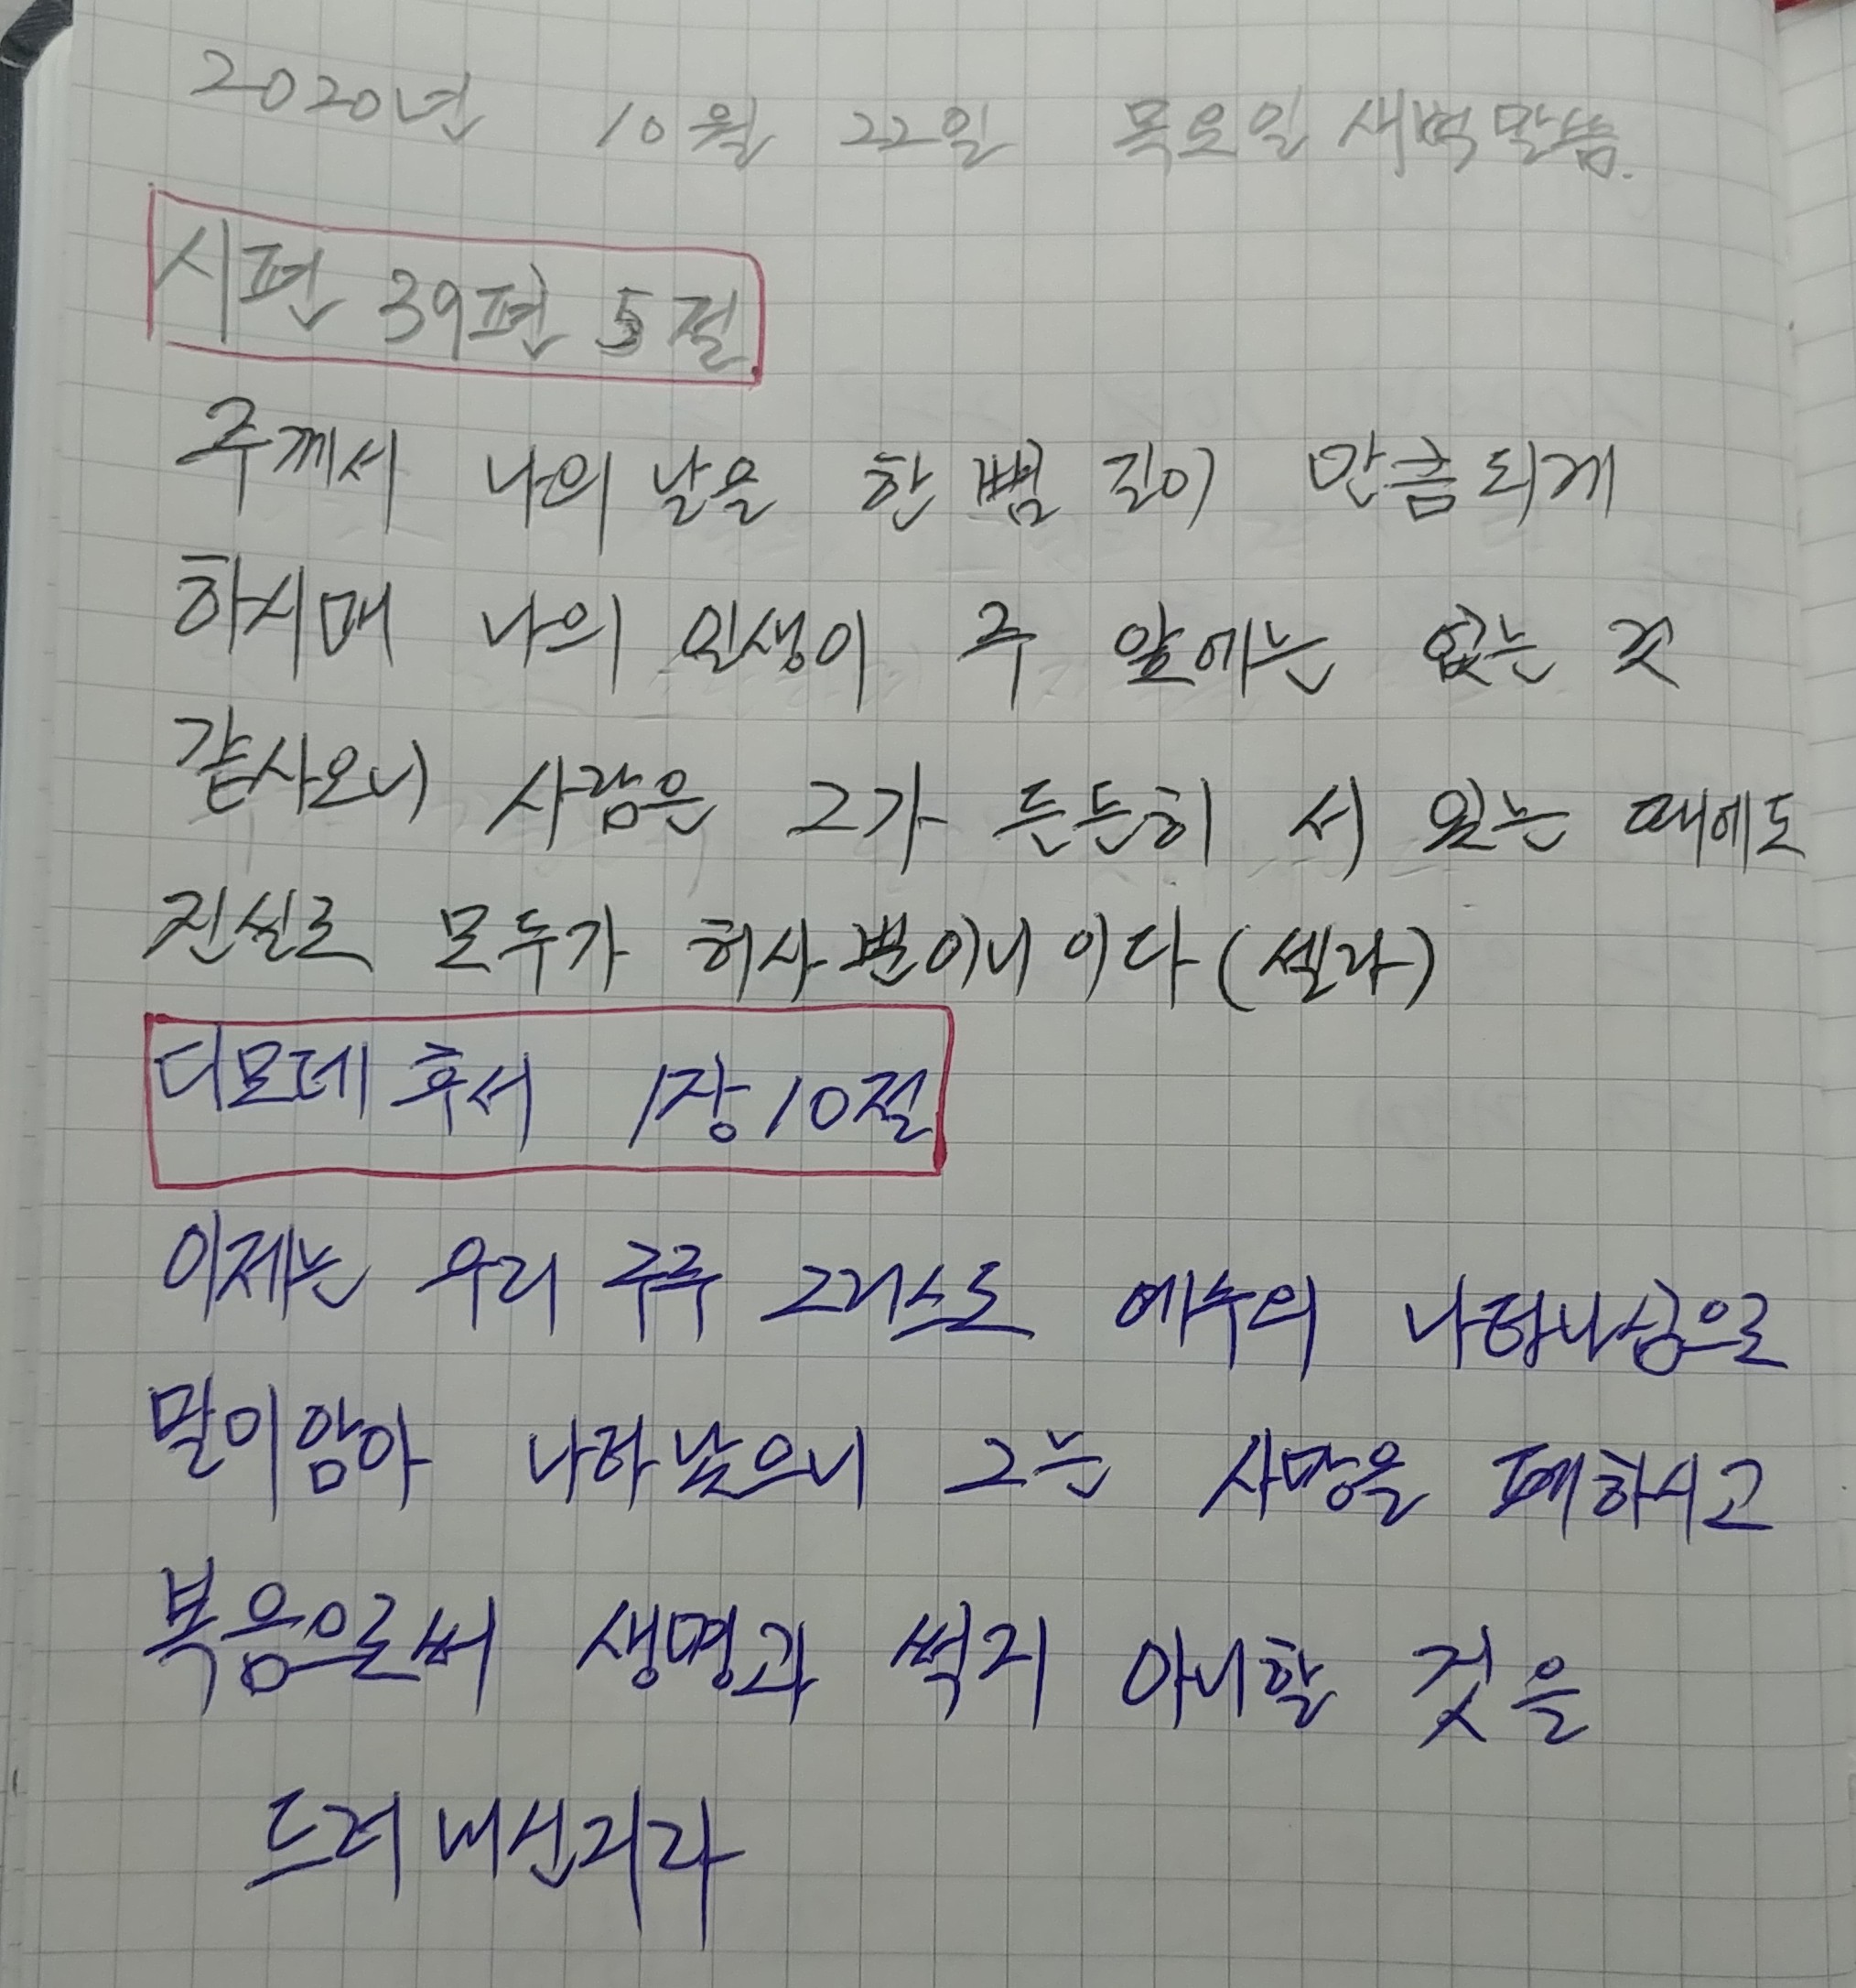 2020년 10월 22일 목요일 새벽말씀.
시편 39편 5절
주께서 나의 날을 한 뼘 길이 만큼되게
하시매 나의 일생이 주 앞에는 없는 것
같사오니 사람은 그가 든든히 서 있는 때에도
진실로 모두가 허사뿐이니이다 (셀라)
디모데 후서 1장 10절
이제는 우리 구주 그리스도 예수의 나타나심으로
말미암아 나타났으니 그는 사망을 폐하시고
복음으로써 생명과 썩지 아니할 것을
드러내신지라